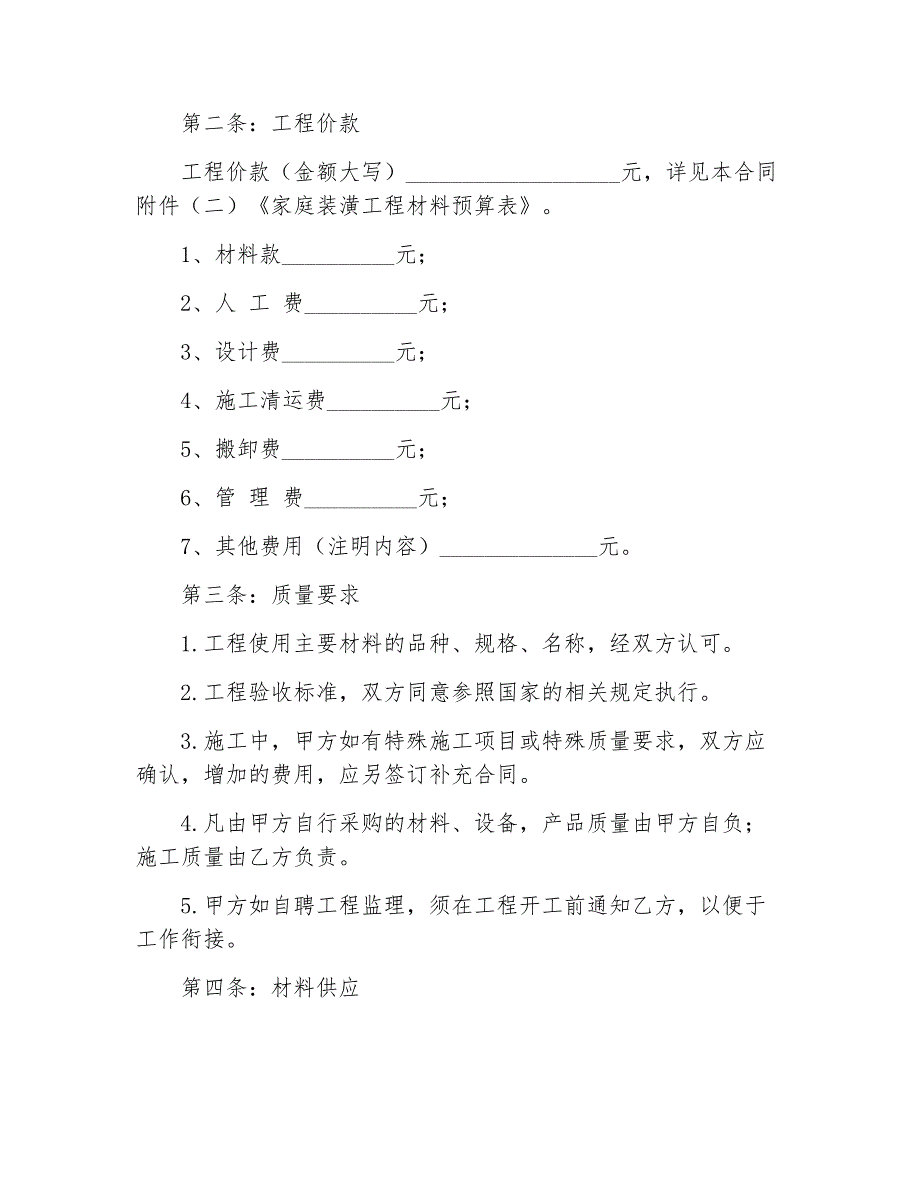 第二条：工程价款
工程价款（金额大写）___________________元，详见本合同
附件（二）《家庭装潢工程材料预算表》。
1、材料款__________元；
2、人 工 费__________元；
3、设计费__________元；
4、施工清运费__________元；
5、搬卸费__________元；
6、管 理 费__________元；
7、其他费用（注明内容）______________元。
第三条：质量要求
1.工程使用主要材料的品种、规格、名称，经双方认可。
2.工程验收标准，双方同意参照国家的相关规定执行。
3.施工中，甲方如有特殊施工项目或特殊质量要求，双方应
确认，增加的费用，应另签订补充合同。
4.凡由甲方自行采购的材料、设备，产品质量由甲方自负；
施工质量由乙方负责。
5.甲方如自聘工程监理，须在工程开工前通知乙方，以便于
工作衔接。
第四条：材料供应